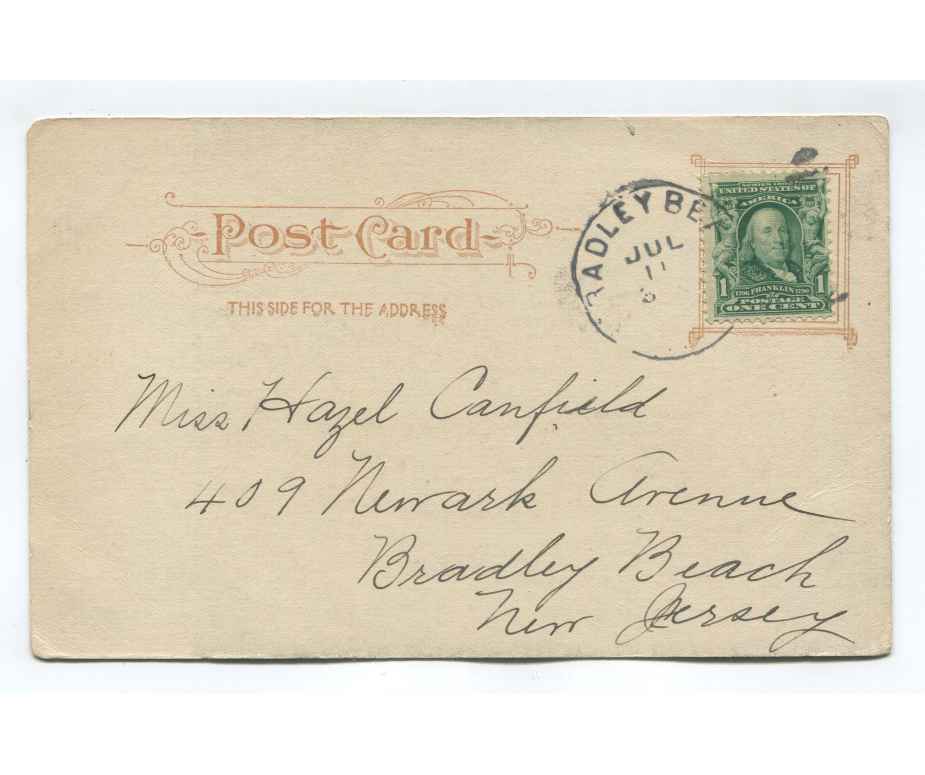 Post Card
THIS SIDE FOR THE ADDRESS
RADLEY BE
JUL
11
SERIES 1902
UNITED STATES OF
AMERICA
1 1
1706 FRANKLIN 1790
POSTAGE
ONE CENT
Miss Hazel Canfield
409 Newark Avenue
Bradley Beach
New Jersey